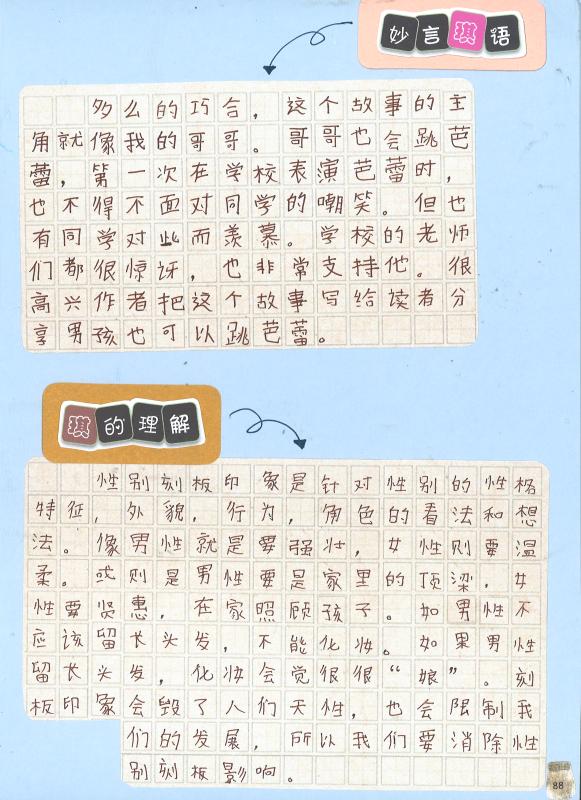 妙言琪语
多么的巧合，这个故事的主
角就像我的哥哥。哥哥也会跳芭
蕾，第一次在学校表演芭蕾时，
也不得不面对同学的嘲笑。但也
有同学对此而羡慕。学校的老师
们都很惊讶，也非常支持他。很
高兴作者把这个故事写给读者分
享男孩也可以跳芭蕾。
琪的理解
性别刻板印象是针对性别的性格
特征，外貌，行为，角色的看法和想
法。像男性就是要强壮，女性则要温
柔。或则是男性要是家里的顶梁，女
性要贤惠，在家照顾孩子。如男性不
应该留长头发，不能化妆。如果男性
留长头发，化妆会觉很很“娘”。刻
板印象会毁了人们天性，也会限制我
们的发展，所以我们要消除性
别刻板影响。
88